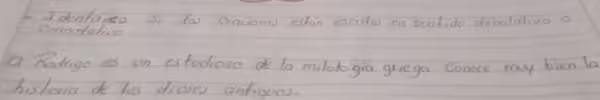 - Identifica si las oraciones están escritas en sentido denotativo o
connotativo
a Rodrigo es un estudioso de la mitología griega conoce muy bien la
historia de los dioses antiguos.